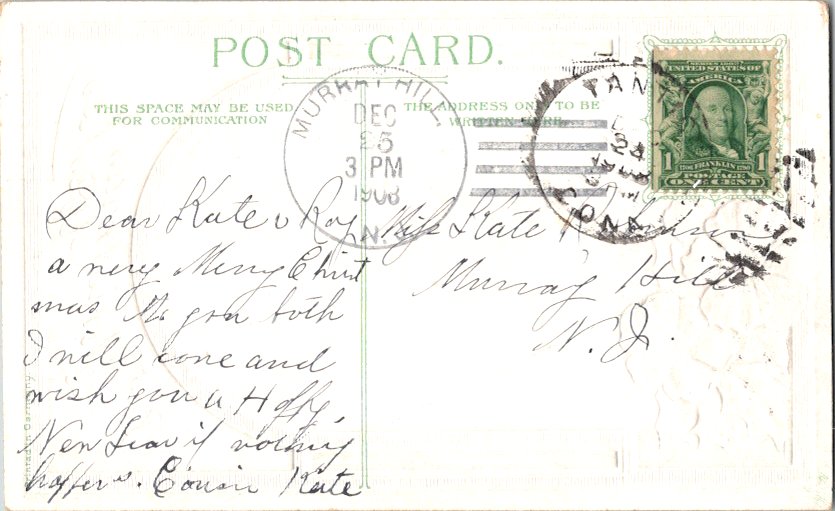 POST CARD.
THIS SPACE MAY BE USED
FOR COMMUNICATION
THE ADDRESS ONLY TO BE
WRITTEN HERE
MURRAY HILL,
DEC
25
3 PM
1908
N.J.
TAN
24
CONN
SERIES 1902
UNITED STATES OF
AMERICA
1 FRANKLIN 1
POSTAGE
ONE CENT
Dear Kate & Roy
a very Merry Christ
mas to you both
I will come and
wish you a Happy
New Year if nothing
happens. Cousin Kate
Miss Kate Robinson
Murray Hill
N.J.
Printed in Germany